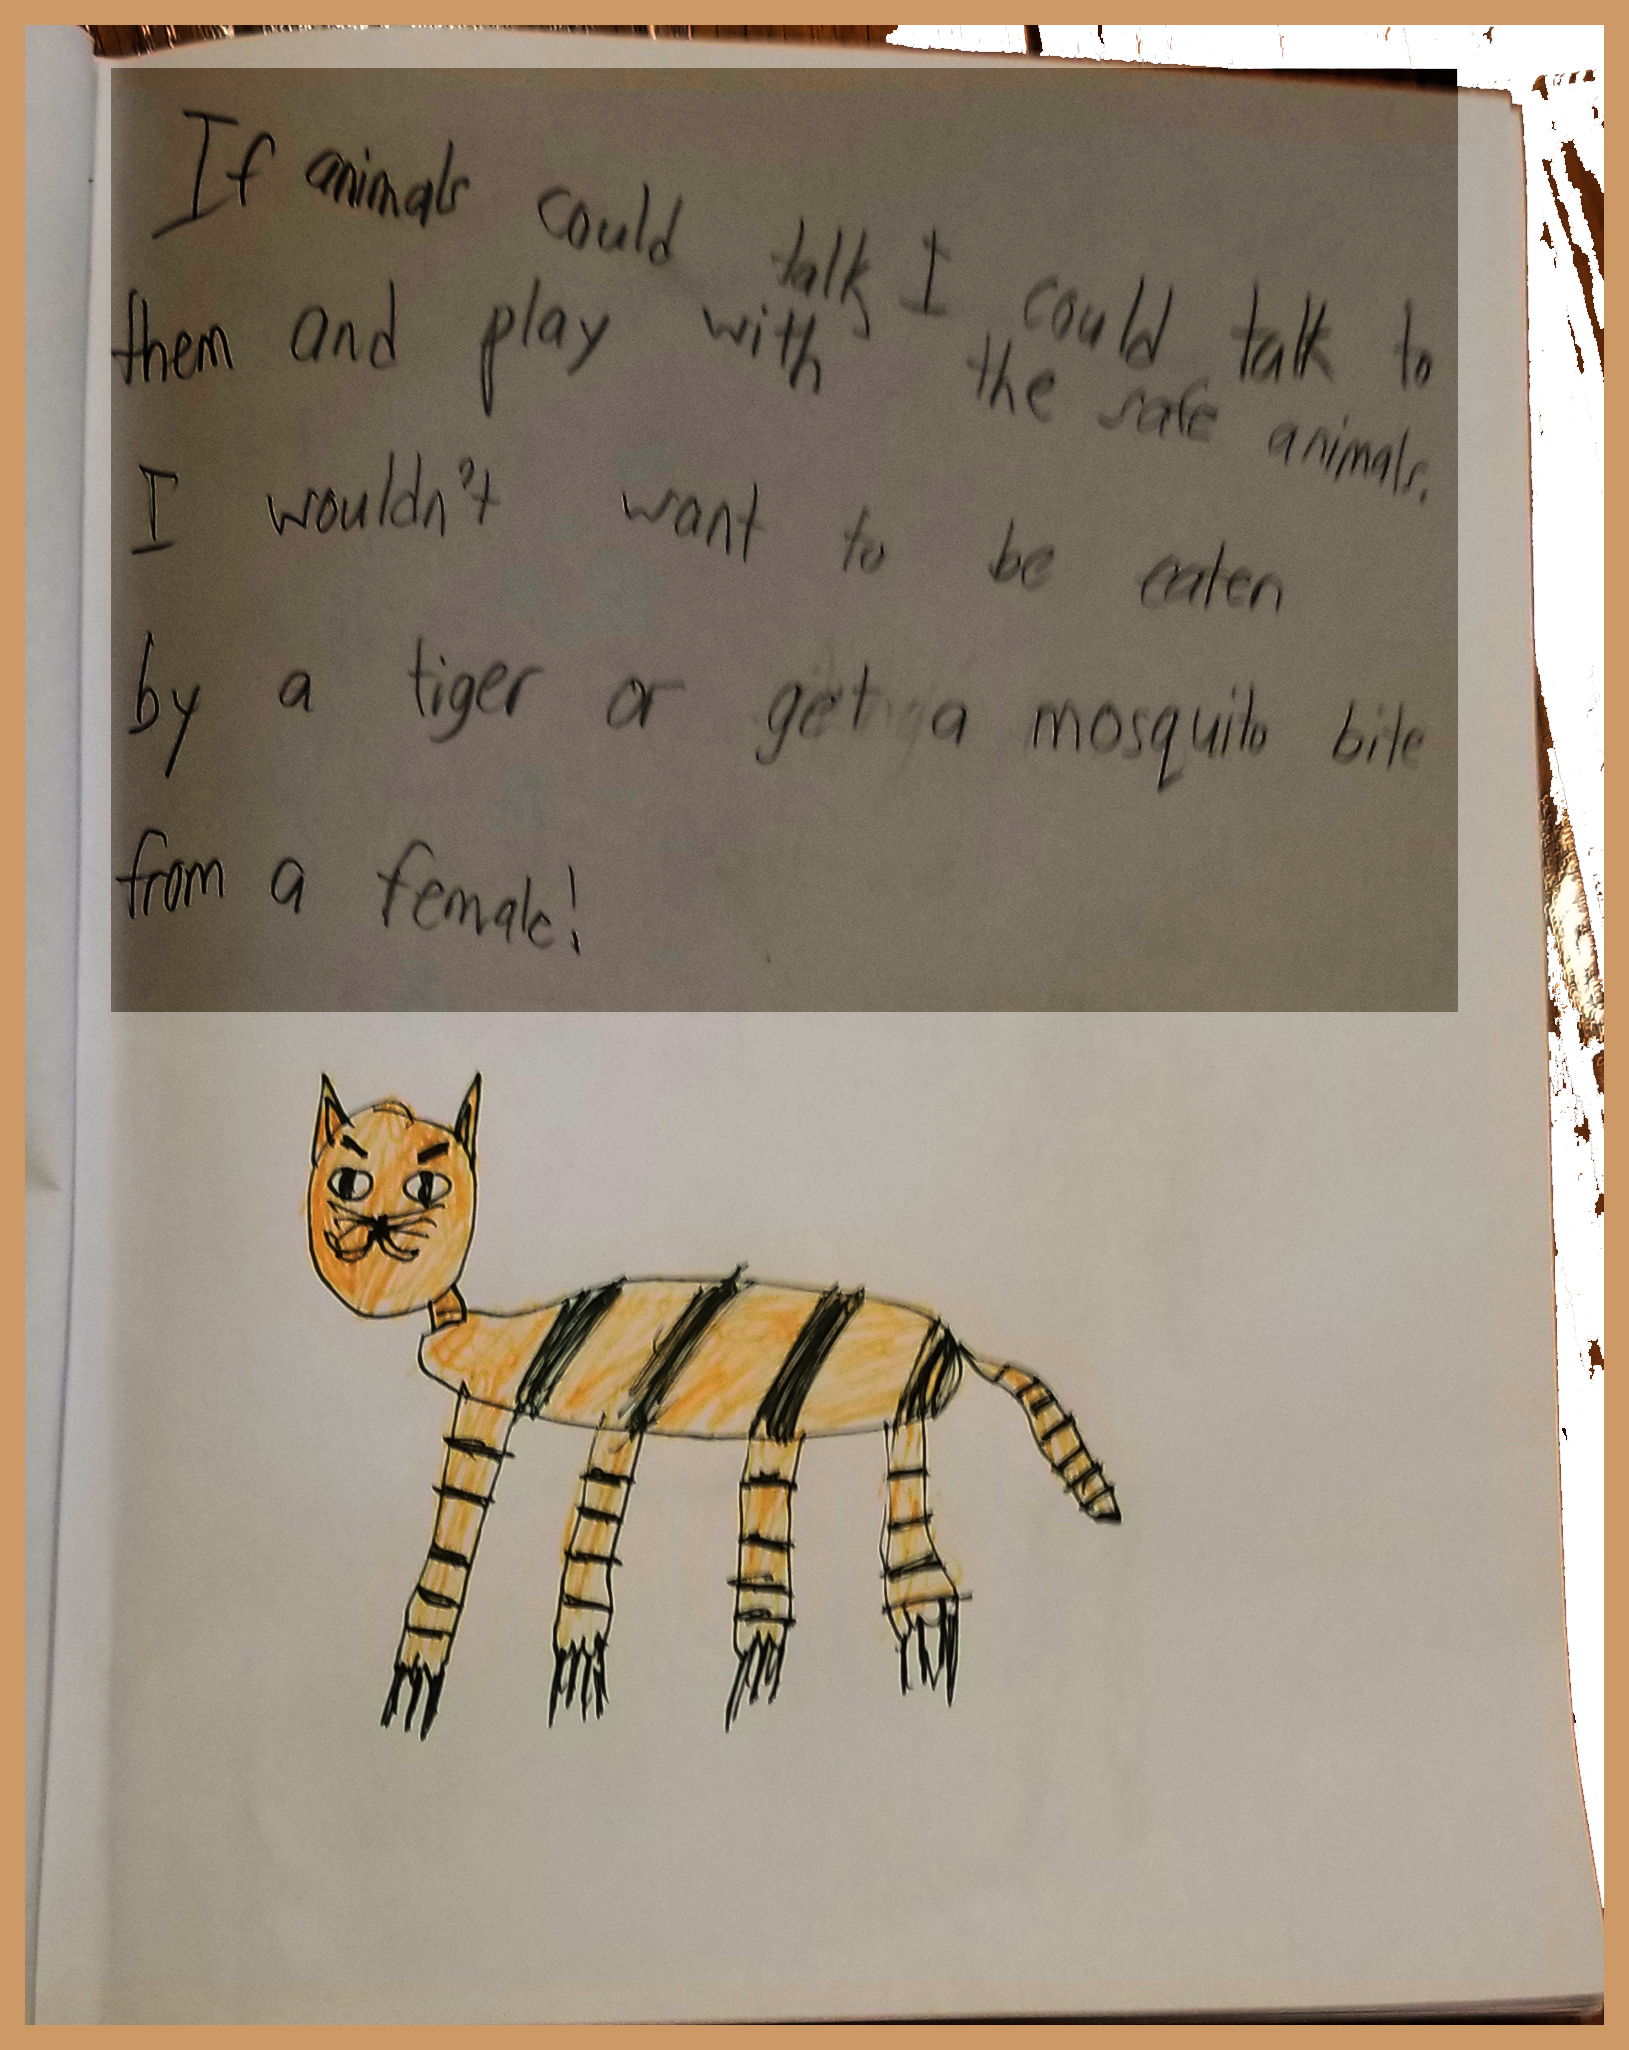 If animals could talk I could talk to
them and play with the safe animals.
I wouldn't want to be eaten
by a tiger or get a mosquito bite
from a female!